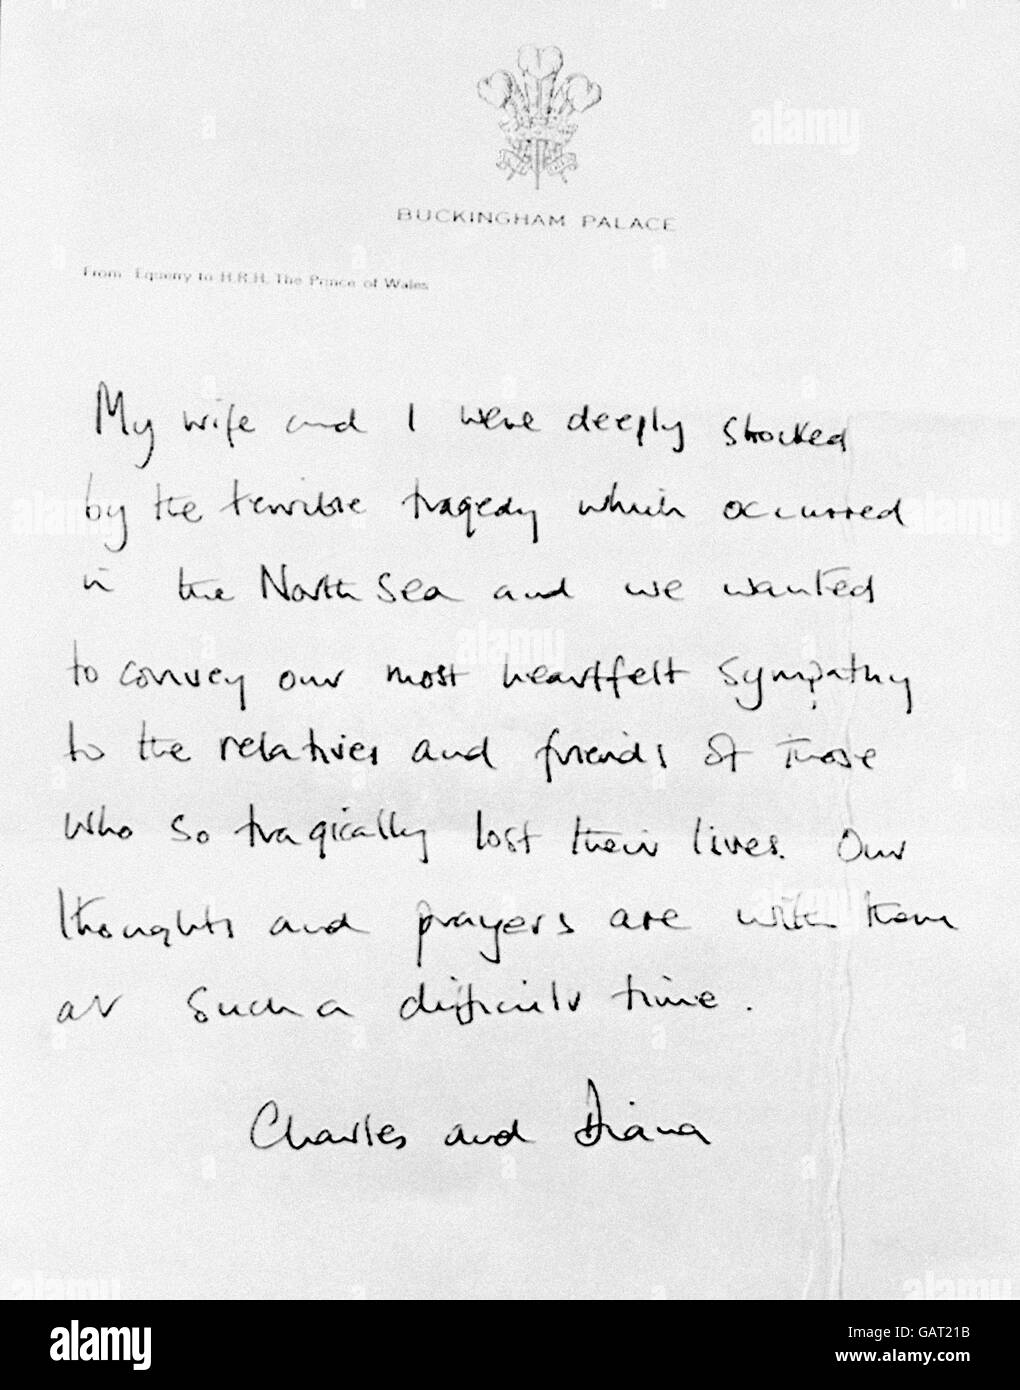 BUCKINGHAM PALACE
From Equerry to H.R.H. The Prince of Wales
My wife and I were deeply shocked
by the terrible tragedy which occurred
in the North Sea and we wanted
to convey our most heartfelt sympathy
to the relatives and friends of those
who so tragically lost their lives. Our
thoughts and prayers are with them
at such a difficult time.
Charles and Diana
alamy
Image ID: GAT21B
www.alamy.com